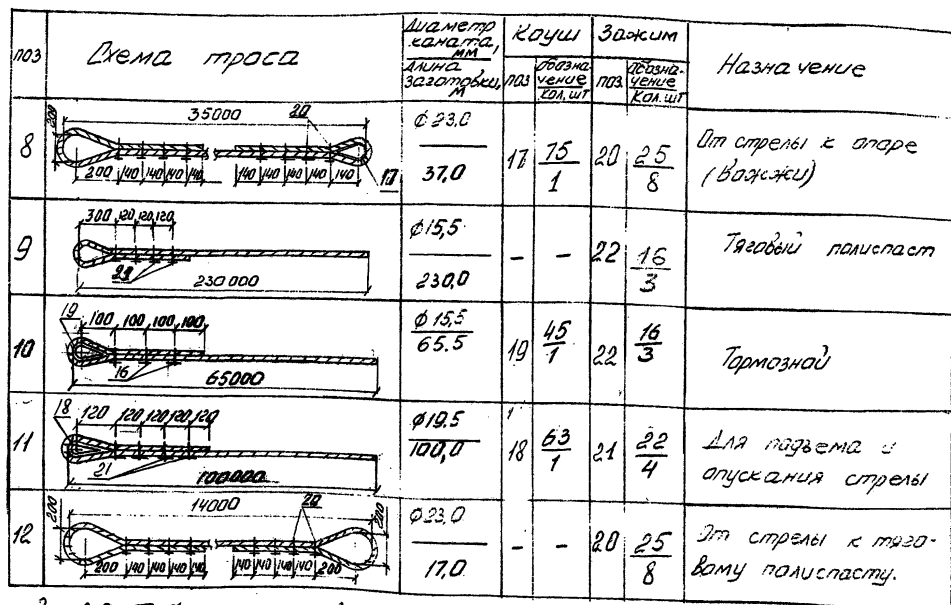 поз Схема троса Диаметр каната, мм Коуш Зажим Назначение
длина заготовки, м поз обозначение кол. шт поз. обозначение кол. шт
8
200 35000 20
200 140 140 140 140 140 140 140 140 17
ф 23.0
37,0
17 75 1
20 25 8
От стрелы к опоре
(Вожжи)
9
300 120 120 120
230000
ф15,5
230,0
- -
22 16 3
Тяговый полиспаст
10
19 100 100 100 100
16
65000
ф 15,5
65.5
19 45 1
22 16 3
Тормозной
11
18 120 120 120 120 120
21
100000
ф19.5
100,0
18 63 1
21 22 4
Для подъема и
опускания стрелы
12
200 14000 20 200
200 140 140 140 140 140 140 140 200
ф23,0
17,0
- -
20 25 8
От стрелы к тяго-
вому полиспасту.